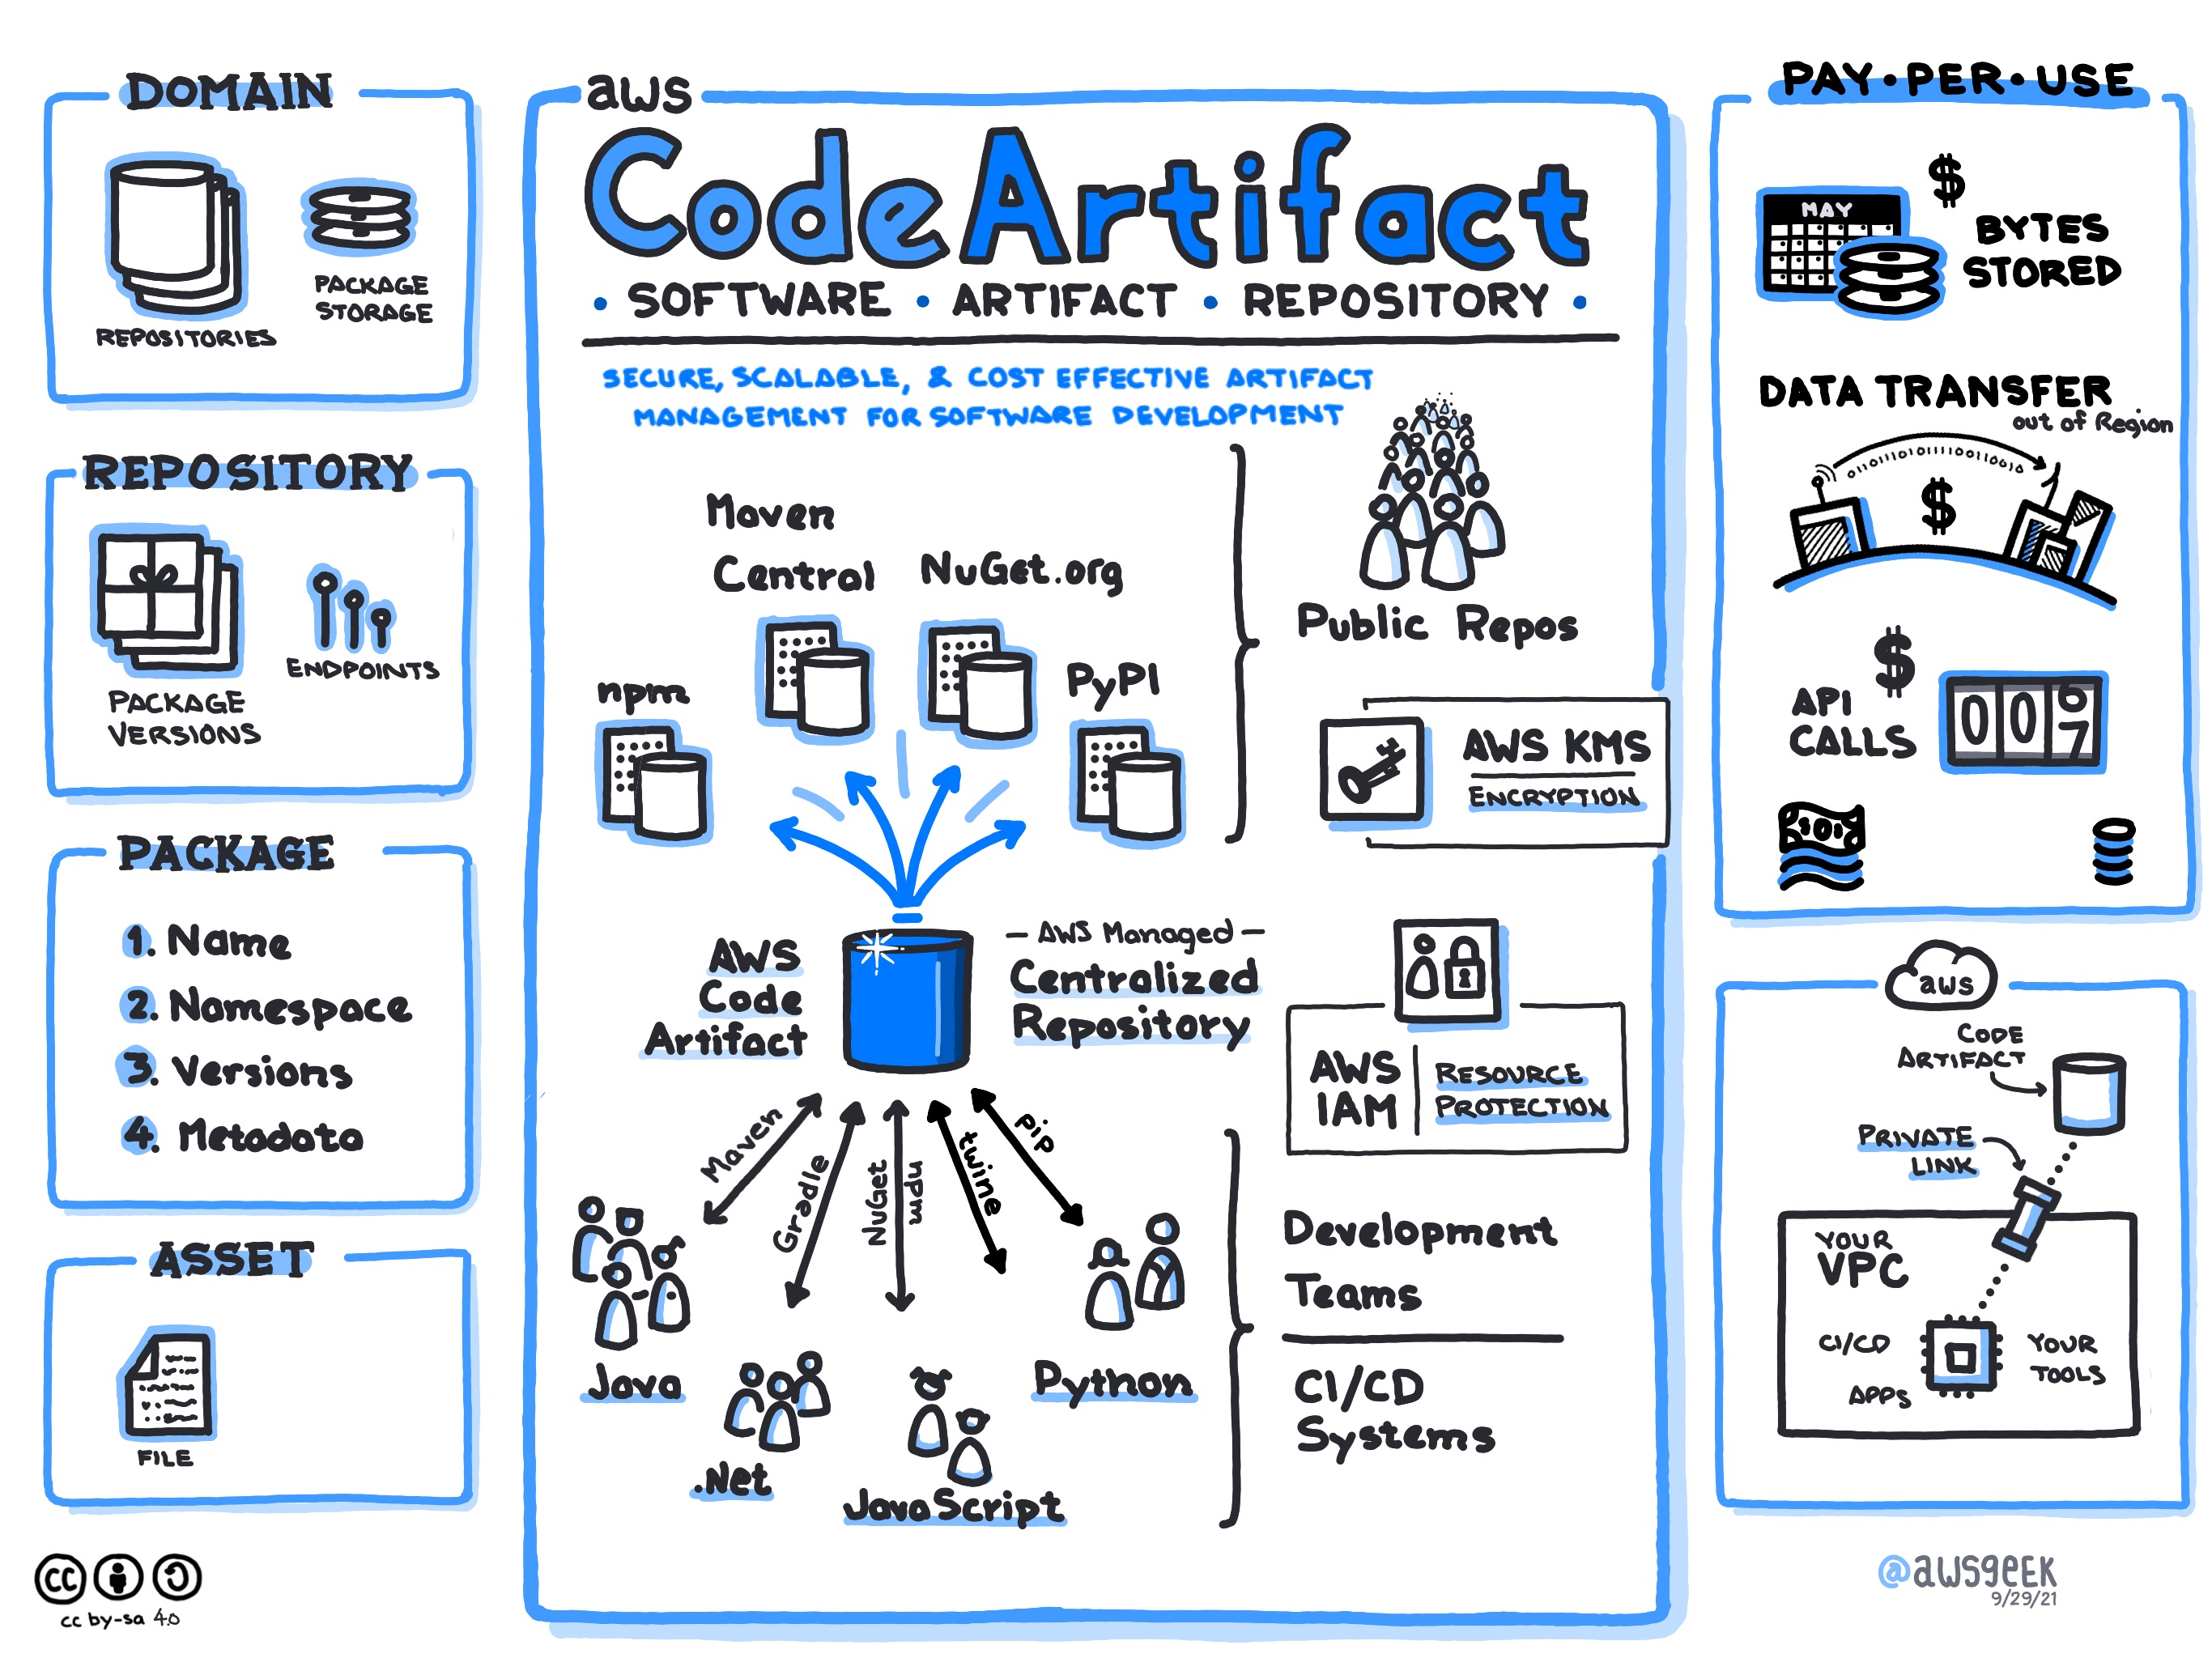 DOMAIN
REPOSITORIES
PACKAGE
STORAGE
REPOSITORY
PACKAGE
VERSIONS
ENDPOINTS
PACKAGE
1. Name
2. Namespace
3. Versions
4. Metadata
ASSET
FILE
cc
cc by-sa 4.0
aws
CodeArtifact
• SOFTWARE • ARTIFACT • REPOSITORY •
SECURE, SCALABLE, & COST EFFECTIVE ARTIFACT
MANAGEMENT FOR SOFTWARE DEVELOPMENT
Maven
Central
NuGet.org
npm
PyPI
Public Repos
AWS KMS
ENCRYPTION
AWS
Code
Artifact
— AWS Managed —
Centralized
Repository
AWS
IAM
RESOURCE
PROTECTION
Maven
Gradle
NuGet
npm
twine
pip
Java
.Net
JavaScript
Python
Development
Teams
CI/CD
Systems
PAY•PER•USE
MAY
$
BYTES
STORED
DATA TRANSFER
out of Region
$
$
API
CALLS
0 0 6
7
aws
CODE
ARTIFACT
PRIVATE
LINK
YOUR
VPC
CI/CD
APPS
YOUR
TOOLS
@awsgeek
9/29/21